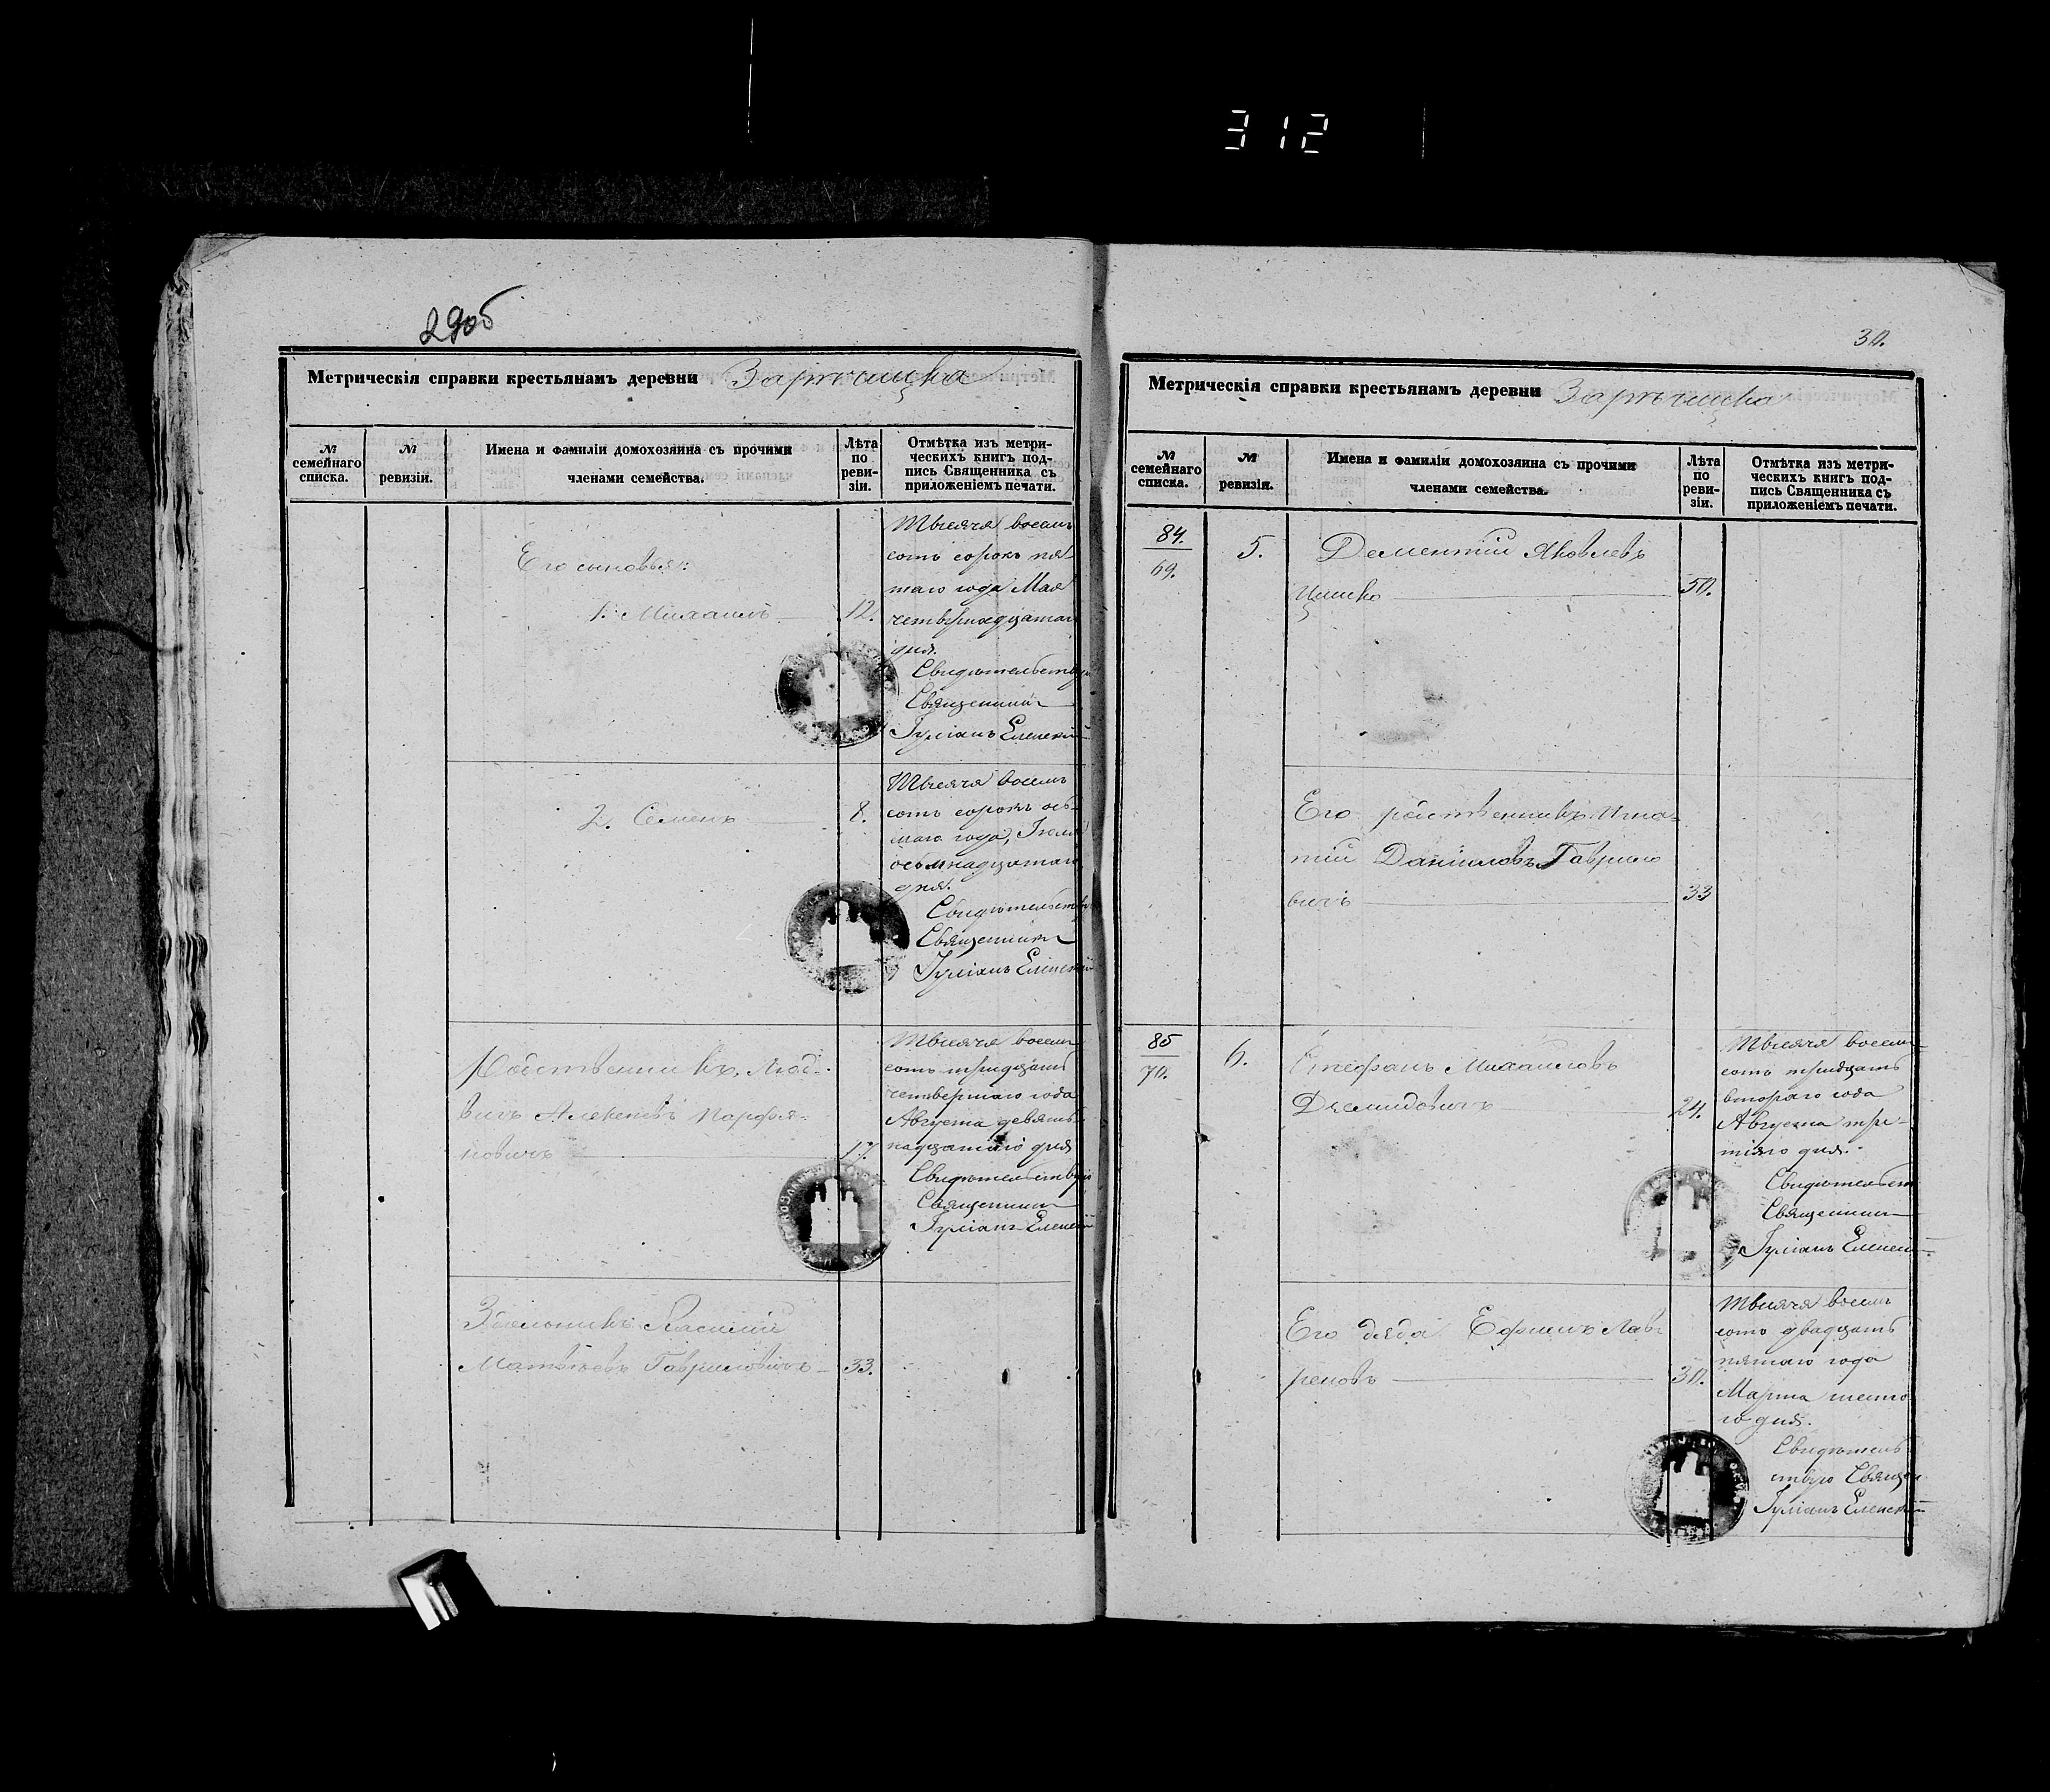 312
29об
Метрическія справки крестьянамъ деревни Зарѣчицка
№ семейнаго списка.
№ ревизіи.
Имена и фамиліи домохозяина съ прочими членами семейства.
Лѣта по реви-зіи.
Отмѣтка изъ метри-
ческихъ книгъ под-
пись Священника съ
приложеніемъ печати.
Его сыновья:
1. Михаилъ 12.
Тысяча восемь
сотъ сорокъ пя
таго года Мая
четырнадцатаго
дня.
Свидѣтельствую
Священникъ
Іуліанъ Еленскій
2. Семенъ 8.
Тысяча восемь
сотъ сорокъ ось-
маго года, Іюля
осьмнадцатаго
дня.
Свидѣтельству
Священникъ
Іуліанъ Еленскій
Родственникъ,
вичъ Алексѣй Парфя-
новичъ 17.
Тысяча восемь
сотъ тридцать
четвертаго года
Августа девят
надцатаго дня
Свидѣтельствую
Священникъ
Іуліанъ Еленскій
Василій
Матвѣевъ Гавриловичъ 33.
30.
Метрическія справки крестьянамъ деревни Зарѣчицка
№ семейнаго списка.
№ ревизіи.
Имена и фамиліи домохозяина съ прочими членами семейства.
Лѣта по реви-зіи.
Отмѣтка изъ метри-
ческихъ книгъ под-
пись Священника съ
приложеніемъ печати.
84.
69.
5.
Дементій Яковлевъ
Цишко 50.
Его родственникъ Игна-
тій Даниловъ Гаврило
вичъ 33
85
70.
6.
Стефанъ Михаиловъ
Демидовичъ 24.
Тысяча восемь
сотъ тридцать
втораго года
Августа тре-
тяго дня.
Свидѣтельст
Священникъ
Іуліанъ Еленскій
Его дядя Ефимъ Лав-
реновъ 30.
Тысяча восемь
сотъ двадцать
пятаго года
Марта шесто
го дня.
Свидѣтель
ствую Священ
Іуліанъ Еленскій